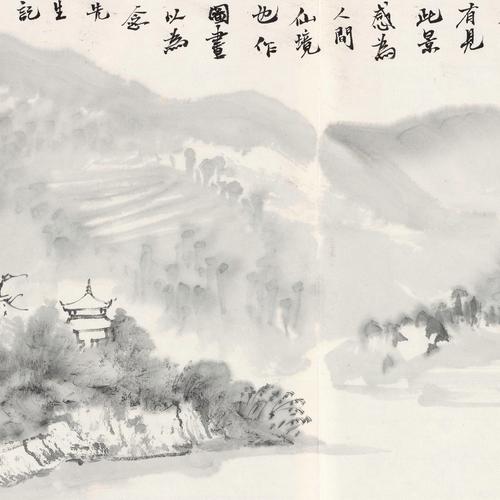 有見
此景
感為
人間
仙境
也作
圖畫
以為
念
先
生
記